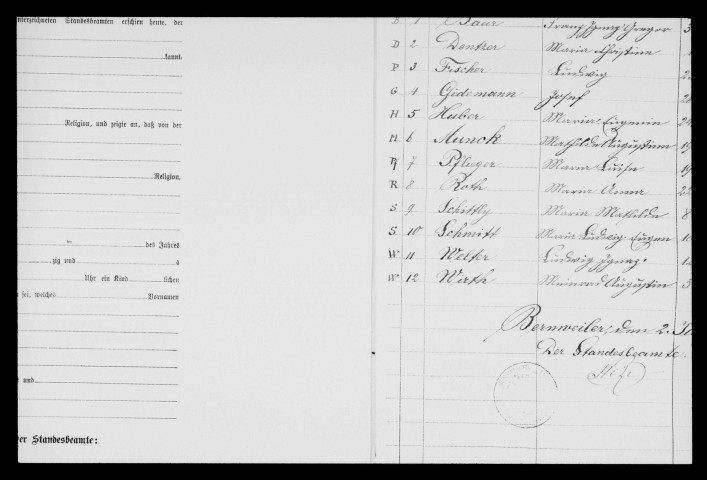 unterzeichneten Standesbeamten erschien heute, der
kannt,
Religion, und zeigte an, daß von der
Religion,
des Jahres
zig und
Uhr ein Kind lichen
sei, welches Vornamen
und
Der Standesbeamte:
B 1 Baur Franz Ignaz Gregor 3
D 2 Dentzer Maria Christina
P 3 Fischer Ludwig
G 4 Gidemann Josef 28
H 5 Huber Maria Eugenia 24
M 6 Munck Mathilde Augustina 19
Pf 7 Pflieger Maria Luise 19
R 8 Roth Maria Anna 22
S 9 Schittly Maria Mathilde 8
S 10 Schmitt Maria Ludwig Eugen
W 11 Welter Ludwig Ignaz
W 12 Wirth Meinrad Augustin
Bernweiler, den 2.
Der Standesbeamte.